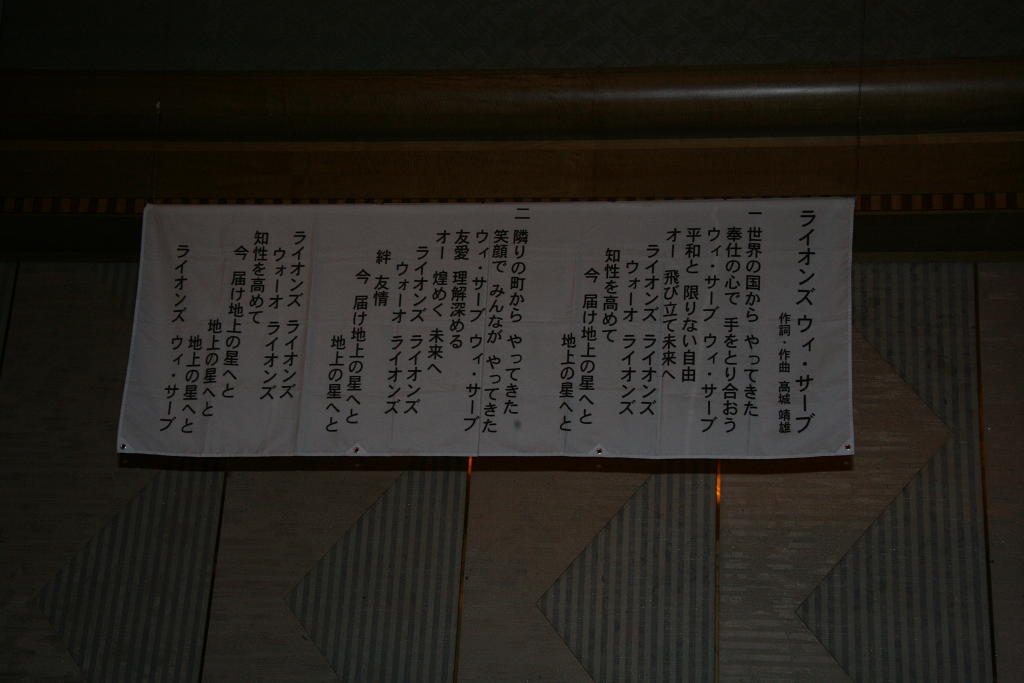 ライオンズ ウィ・サーブ
作詞・作曲 高城 靖雄
一 世界の国から やってきた
奉仕の心で 手をとり合おう
ウィ・サーブ ウィ・サーブ
平和と 限りない自由
オー 飛び立て未来へ
ライオンズ ライオンズ
ウォーオ ライオンズ
知性を高めて
今 届け地上の星へと
地上の星へと
二 隣りの町から やってきた
笑顔で みんなが やってきた
ウィ・サーブ ウィ・サーブ
友愛 理解深める
オー 煌めく 未来へ
ライオンズ ライオンズ
ウォーオ ライオンズ
絆 友情
今 届け地上の星へと
地上の星へと
ライオンズ ライオンズ
ウォーオ ライオンズ
知性を高めて
今 届け地上の星へと
地上の星へと
地上の星へと
ライオンズ ウィ・サーブ